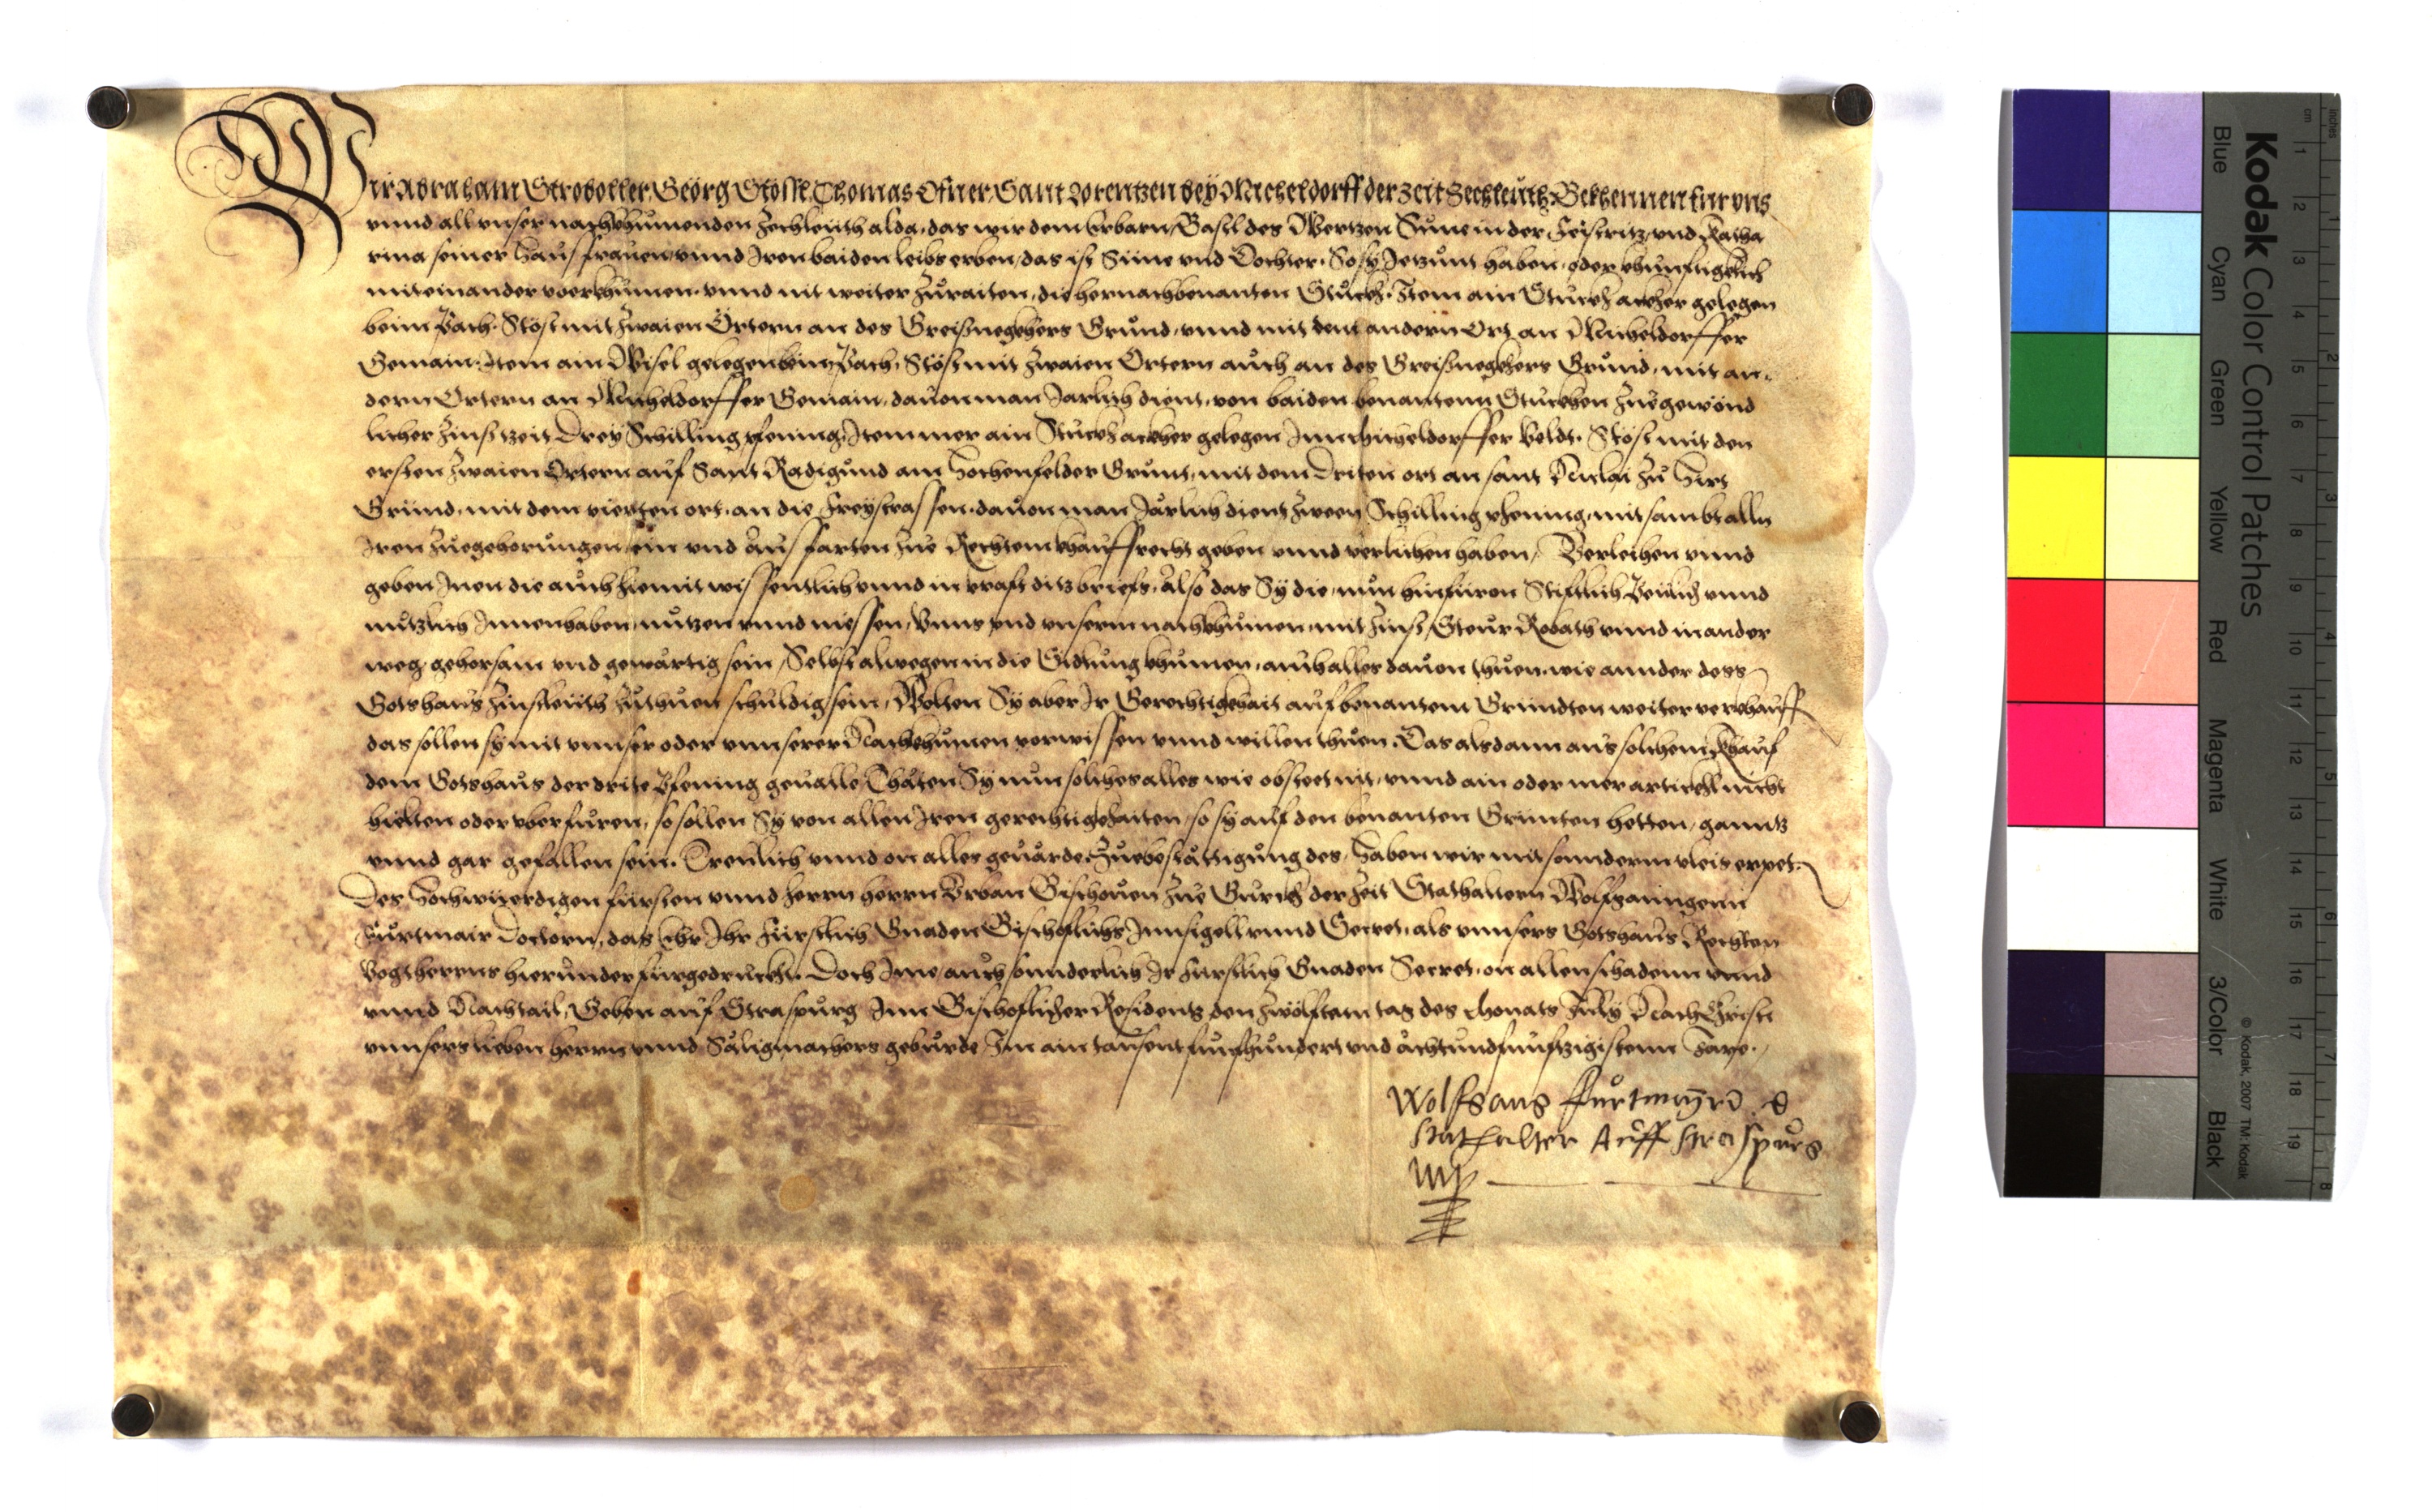 Wir Abraham Stroboller, Georg Stössl, Thomas Ofner, Sant Lorentzen bey Micheldorff der zeit Zechleüth, Bekhennen fur uns
vnnd all vnser nachkhumenden Zechleüth alda, das wir dem Erbarn Basl des Wertzen Sune in der Feistritz, vnd Katha
rina seiner hausfrauen, vnnd Iren baiden leibs erben, das ist Süne vnd Dochter, So sy Jetzunt haben, oder khunftigclich
miteinander vberkhumen, vnnd nit weiter zuraiten, die hernachbenanten Stuckh. Item ain Stuckh ackher gelegen
beim Pach, Stöst mit zwaien Örtern an des Greißneggers Grund, vnnd mit dem andern Ort an Micheldorffer
Gemain, Item ain Wisel gelegen beim Pach, Stöst mit zwaien Örtern auch an des Greißneggers Grund, mit an-
dern Örtern an Micheldorffer Gemain, dauon man Jarlich dient, von baiden benanten Stuckhen zue gewond
licher zinßtzeit Drey Schilling pfening, Item mer ain Stuckh ackher gelegen Jm Micheldorffer Veldt, Stöst mit den
ersten zwaien Örtern auf Sant Radigund am Hochenfelder Grunt, mit dem driten ort an sant Niclaj zu Hirt
Grund, mit dem vierten ort, an die Freystrassen, dauon man Järlich dient zween Schilling pfening, mit sambt alln
Iren zuegehorungen, ein vnd ausfarten zue Rechtem khauffrecht geben vnnd verlichen haben, Verleihen vnnd
geben Inen die auch hiemit wissentlich vnnd in craft ditz briefs, Also das Sy die, nun hinfüron Stiftlich Peülich vnnd
nutzlich Innenhaben, nutzen vnnd niessen, Vnns vnd vnserm nachkhumen, mit zinß, Steur Robath vnnd in ander
weg, gehorsam vnd gewärtig sein, Selbst alwegen in die Stiftung khumen, auch alles dauon thuen, wie annder dess
Gotshaus zinßleüth zuthuen schuldig sein, Wolten Sy aber Ir Gerechtigkhait auf benantem Gründten weiter verkhauff
das sollen sy mit vnnser oder vnnserer Nachkhumen vorwissen vnnd willen thuen. Das alsdann aus solchem khauf
dem Gotshaus der drite Pfening geualle, Thäten Sy nun solches alles wie obsteet nit, vnnd ain oder mer articckl nicht
hielten oder vberfüren, so sollen Sy von allen Iren gerechtigkhaiten, so sy auf den benanten Grünten hetten, ganntz
vnnd gar gefallen sein. Treulich vnnd on alles geuärde, zue bestättigung des, haben wir mit sonnderm vleis erpet.
Des Hochwierdigen fürsten vnnd herrn herrn Vrban Bischouen zue Gurckh der zeit Stathaltern Wolfganngenn
Fürtmair Doctorn, das Ehr Ihr Fürstlich Gnaden Bischoflichs Innsigell vnnd Secret, als vnnsers Gotshaus Rechten
Vogtherrns hierunder fürgedruckht. Doch Ime auch sonnderlich Ir fürstlich Gnaden Secret, on allen schadenn vnnd
vnnd Nachtail, Geben auf Straspurg Inn Bischoflicher Residentz den zwölften tag des Monats July Nach Christi
vnnsers lieben herrns vnnd Säligmachers geburde, Im ain tausent funfhundert vnd achtundfunftzigistem Jare.
Wolfgang Fürtmayr D
Stathalter Auff Straspurg
Mp
Kodak Color Control Patches
© Kodak, 2007 TM: Kodak
Blue Cyan Green Yellow Red Magenta White 3/Color Black
cm 1 2 3 4 5 6 7 8 9 10 11 12 13 14 15 16 17 18 19
inches 1 2 3 4 5 6 7 8